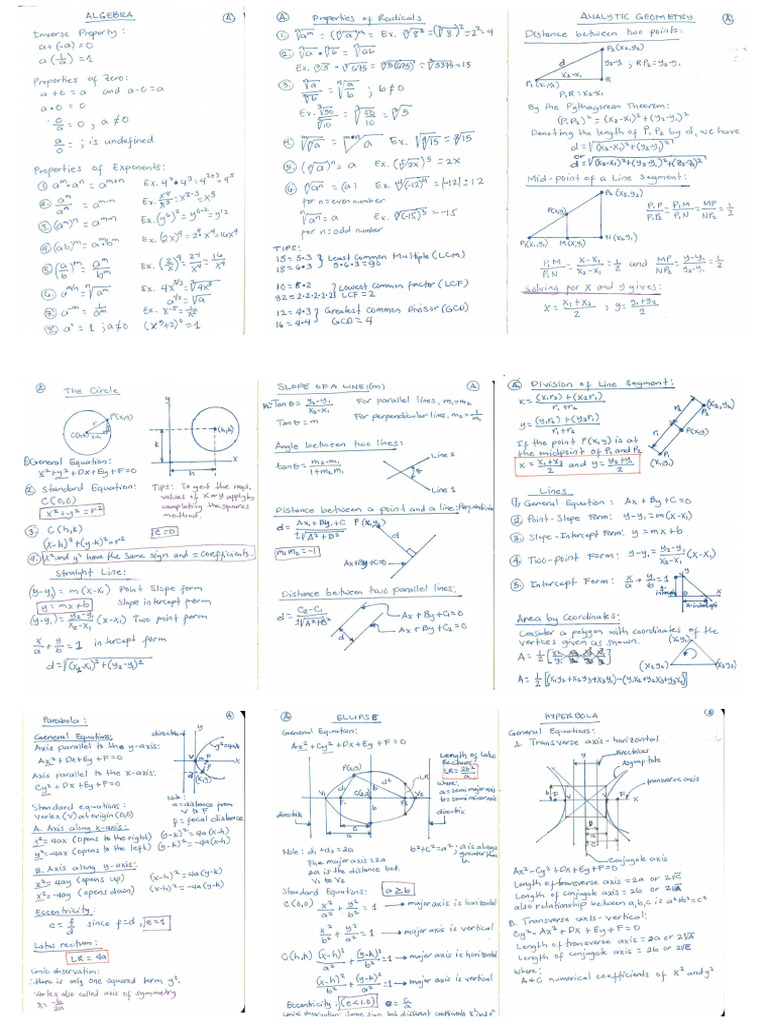 ALGEBRA
Ⓐ
Inverse Property:
a + (-a) = 0
a (1/a) = 1
Properties of Zero:
a + 0 = a and a - 0 = a
a • 0 = 0
0/a = 0, a ≠ 0
a/0 = ; is undefined
Properties of Exponents:
① aᵐ • aⁿ = aᵐ⁺ⁿ Ex. 4² • 4³ = 4²⁺³ = 4⁵
② aᵐ/aⁿ = aᵐ⁻ⁿ Ex. x⁸/x³ = x⁸⁻³ = x⁵
③ (aᵐ)ⁿ = Ex. (y⁶)² = y⁶•² = y¹²
④ (ab)ᵐ = aᵐbᵐ Ex. (2x)⁴ = 2⁴x⁴ = 16x⁴
⑤ (a/b)ᵐ = aᵐ/bᵐ Ex. (2/x)⁴ = 2⁴/x⁴ = 16/x⁴
⑥ aᵐ/ⁿ = ⁿ√aᵐ
a¹/² = √a
⑦ a⁻ᵐ = 1/aᵐ Ex. x⁻⁵ = 1/x⁵
⑧ a⁰ = 1 ; a ≠ 0 (x⁵+2)⁰ = 1
Ⓐ
Properties of Radicals
① ⁿ√aᵐ = (ⁿ√a)ᵐ = Ex. ³√8² = (³√8)² = 2² = 4
② ⁿ√a • ⁿ√b = ⁿ√ab
Ex. ³√5 • ³√675 = ³√5(675) = ³√3375 = 15
③ ⁿ√a/ⁿ√b = ⁿ√a/b ; b ≠ 0
Ex. ³√50/³√10 = ³√50/10 = ³√5
④
⑤ (ⁿ√a)ⁿ = a Ex. (⁵√2x)⁵ = 2x
⑥ ⁿ√aⁿ = |a| Ex. ⁴√(-12)⁴ = |-12| = 12
for n = even number
ⁿ√aⁿ = a Ex. ⁵√(-15)⁵ = -15
for n = odd number
TIPS:
15 = 5•3 } Least Common Multiple (LCM)
18 = 6•3 5•6•3 = 90
10 = 5•2 } Lowest Common Factor (LCF)
32 = 2•2•2•2•2 LCF = 2
12 = 4•3 } Greatest Common Divisor (GCD)
16 = 4•4 GCD = 4
ANALYTIC GEOMETRY
Ⓐ
Distance between two points:
P₂ (x₂, y₂)
d
y₂-y₁ ; RP₂ = y₂-y₁
x₂-x₁
P₁ (x₁, y₁) R
P₁R = x₂-x₁
By the Pythagorean Theorem:
(P₁P₂)² = (x₂-x₁)² + (y₂-y₁)²
Denoting the length of P₁P₂ by d, we have
d = √(x₂-x₁)² + (y₂-y₁)²
or
d = √(x₂-x₁)² + (y₂-y₁)² + (z₂-z₁)²
Mid-point of a Line Segment:
P₂ (x₂, y₂)
P(x,y)
P₁P/P₁P₂ = P₁M/P₁N = MP/NP₂ = 1/2
P₁(x₁,y₁) M(x,y₁) N(x₂,y₁)
P₁M/P₁N = x-x₁/x₂-x₁ = 1/2 and MP/NP₂ = y-y₁/y₂-y₁ = 1/2
Solving for x and y gives:
x = x₁+x₂/2 ; y = y₁+y₂/2
Ⓐ
The Circle
P(x,y)
r
y
(h,k)
k
h
x
① General Equation:
x² + y² + Dx + Ey + F = 0
② Standard Equation:
C(0,0)
x² + y² = r²
Tips: To get the
values of x or y apply by
completing the squares
method.
③ C(h,k)
e = 0
(x-h)² + (y-k)² = r²
④ x² and y² have the same sign and = coefficients.
Straight Line:
(y-y₁) = m (x-x₁) Point Slope form
y = mx + b Slope intercept form
(y-y₁) = y₂-y₁/x₂-x₁ (x-x₁) Two point form
x/a + y/b = 1 intercept form
d = √(x₂-x₁)² + (y₂-y₁)²
SLOPE OF A LINE (m)
Ⓐ
Tan θ = y₂-y₁/x₂-x₁ For parallel lines, m₁ = m₂
Tan θ = m For perpendicular lines, m₂ = 1/m₁
Angle between two lines:
tan θ = m₂-m₁/1+m₂m₁
Line 2
θ
Line 1
Distance between a point and a line: Perpendicular
d = Ax₁+By₁+C/±√A²+B²
P(x₁,y₁)
d
m₁m₂ = -1
Ax+By+C=0
Distance between two parallel lines:
d = C₂-C₁/±√A²+B²
Ax + By + C₁ = 0
Ax + By + C₂ = 0
d
Ⓐ Division of Line Segment:
x = (x₁r₂) + (x₂r₁)/r₁+r₂
y = (y₁r₂) + (y₂r₁)/r₁+r₂
P₂ (x₂,y₂)
r₂
P(x,y)
r₁
P₁ (x₁,y₁)
If the point P(x,y) is at
the midpoint of P₁ and P₂
x = x₁+x₂/2 and y = y₁+y₂/2
Lines
① General Equation: Ax + By + C = 0
② Point-Slope Form: y-y₁ = m(x-x₁)
③ Slope-Intercept Form: y = mx + b
④ Two-point Form: y-y₁ = y₂-y₁/x₂-x₁ (x-x₁)
⑤ Intercept Form: x/a + y/b = 1
x-intercept
Area by Coordinates:
Consider a polygon with coordinates of the
vertices given as shown.
(x₁y₁)
(x₂y₂) (x₃y₃)
A = ½ [(x₁y₂+x₂y₃+x₃y₁) - (y₁x₂+y₂x₃+y₃x₁)]
Parabola:
Ⓐ
General Equations:
Axis parallel to the y-axis:
Ax² + Dx + Ey + F = 0
Axis parallel to the x-axis:
Cy² + Dx + Ey + F = 0
directrix
y
y²=4ax
x
(x,y)
Standard equations:
Vertex (V) at origin (0,0)
Note:
a = distance from
V to F
f = focal distance
A. Axis along x-axis:
y² = 4ax (opens to the right) (y-k)² = 4a(x-h)
y² = -4ax (opens to the left) (y-k)² = -4a(x-h)
B. Axis along y-axis:
x² = 4ay (opens up) (x-h)² = 4a(y-k)
x² = -4ay (opens down) (x-h)² = -4a(y-k)
Eccentricity:
e = f/d since f=d, e=1
Latus rectum:
LR = 4a
Conic observation:
there is only one squared term y².
Vertex also called axis of symmetry
x = -b/2a
Ⓐ
ELLIPSE
General Equation:
Ax² + Cy² + Dx + Ey + F = 0
Length of Latus
Rectum:
LR = 2b²/a
where:
a = semi major axis
b = semi minor axis
P(x,y)
d₁ d₂
LR
V₁ F₁ C(0,0) F₂ V₂
directrix directrix
Note: d₁ + d₂ = 2a
The major axis = 2a
2a is the distance bet.
V₁ to V₂
b² + c² = a² ; a is always
greater than
b.
Standard Equations: a ≥ b
C(0,0) x²/a² + y²/b² = 1 → major axis is horizontal
x²/b² + y²/a² = 1 → major axis is vertical
C(h,k) (x-h)²/a² + (y-k)²/b² = 1 → major axis is horizontal
(x-h)²/b² + (y-k)²/a² = 1 → major axis is vertical
Eccentricity: (e < 1.0) e = c/a
Conic observation: same sign but different coefficients x² and y²
HYPERBOLA
Ⓐ
General Equations:
A. Transverse axis - horizontal
Directrices
Asymptote
transverse axis
F V V F x
Conjugate axis
Ax² - Cy² + Dx + Ey + F = 0
Length of transverse axis = 2a or
Length of conjugate axis = 2b or
also relationship between a,b,c is a²+b²=c²
B. Transverse axis - vertical:
Cy² - Ax² + Dx + Ey + F = 0
Length of transverse axis = 2a or
Length of conjugate axis = 2b or
where:
A + C numerical coefficients of x² and y²